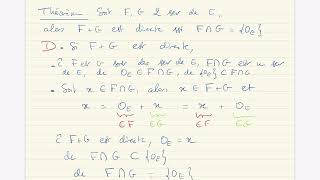 Théorème Soit F, G 2 sev de E,
alors F+G est directe ssi F∩G = {0E}
D. Si F+G est directe,
F et G sont des sev de E, F∩G est un sev
de E, dc 0E ∈ F∩G, dc {0E} ⊂ F∩G
• Soit x ∈ F∩G, alors x ∈ F+G et
x = 0E + x = x + 0E
∈F ∈G ∈F ∈G
F+G est directe, 0E = x
dc F∩G ⊂ {0E}
dc F∩G = {0E}